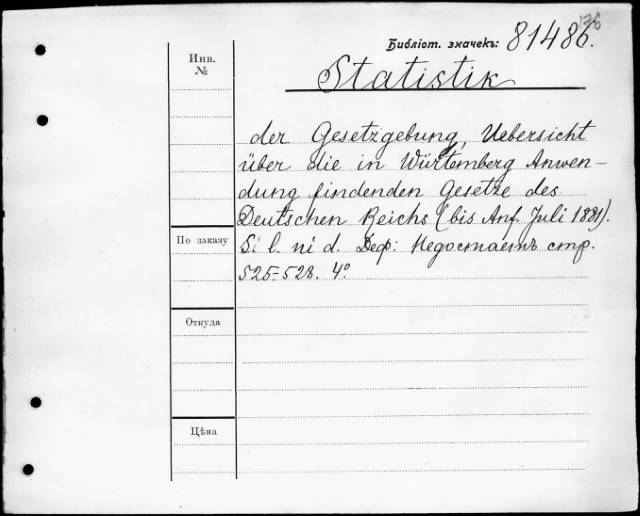 Библіот. значекъ: 81486.
Инв.
№
Statistik
der Gesetzgebung, Uebersicht
über die in Würtemberg Anwen-
dung findenden Gesetze des
Deutschen Reichs (bis Anf. Juli 1881).
По заказу
S. l. ni d. Деф: Недостаетъ стр.
525-528. 4º
Откуда
Цѣна